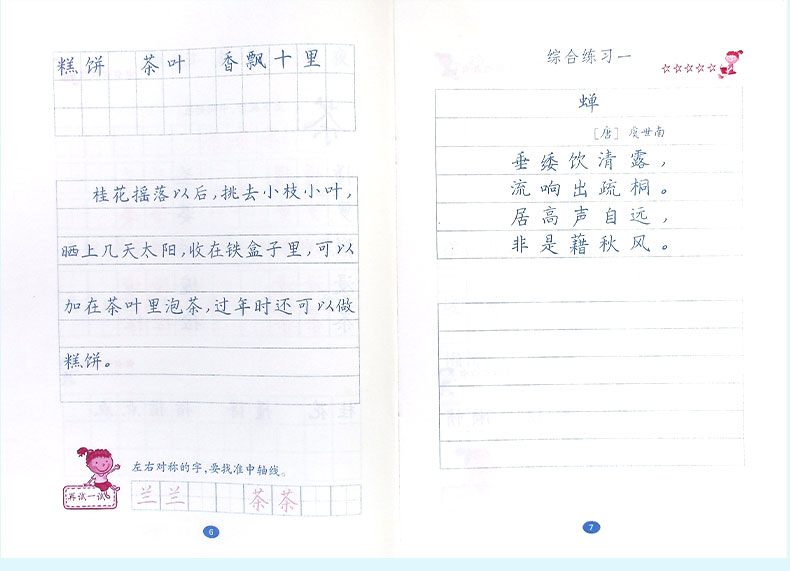 糕饼 茶叶 香飘十里
桂花摇落以后，挑去小枝小叶，
晒上几天太阳，收在铁盒子里，可以
加在茶叶里泡茶，过年时还可以做
糕饼。
左右对称的字，要找准中轴线。
再试一试
兰兰 茶茶
6
综合练习一
☆☆☆☆☆
蝉
［唐］虞世南
垂緌饮清露，
流响出疏桐。
居高声自远，
非是藉秋风。
7